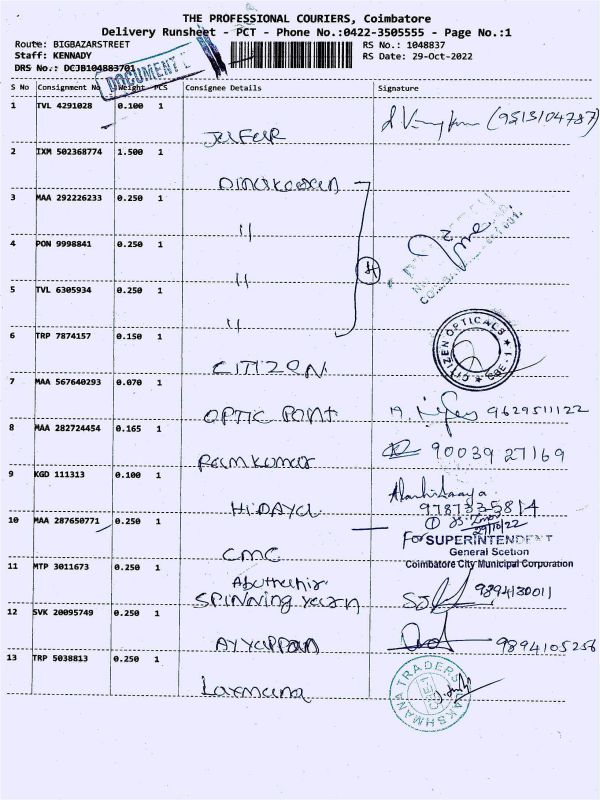 THE PROFESSIONAL COURIERS, Coimbatore
Delivery Runsheet - PCT - Phone No.:0422-3505555 - Page No.:1
Route: BIGBAZARSTREET
RS No.: 1048837
Staff: KENNADY
RS Date: 29-Oct-2022
DRS No.: DCJB104883701
DOCUMENT
S No Consignment No Weight PCS Consignee Details Signature
1 TVL 4291028 0.100 1 JAFER (9513104787)
2 IXM 502368774 1.500 1 Dinakaran
3 MAA 292226233 0.250 1 "
4 PON 9998841 0.250 1 "
4
5 TVL 6305934 0.250 1 "
6 TRP 7874157 0.150 1 CITIZEN
CITIZEN OPTICALS ★ CBE-1 ★
7 MAA 567640293 0.070 1 OPTIC POINT 9629511122
8 MAA 282724454 0.165 1 Ramkumar 90039 27169
9 KGD 111313 0.100 1 HIDAYA
9787335814
10 MAA 287650771 0.250 1 CMC
29/10/22
For SUPERINTENDENT
General Scetion
Coimbatore City Municipal Corporation
11 MTP 3011673 0.250 1 Abuthahir
SPINNING yarn 9894130011
12 SVK 20095749 0.250 1 AYYAPPAN 9894105256
13 TRP 5038813 0.250 1 Laxmana
LAKSHMANA TRADERS CBE-1